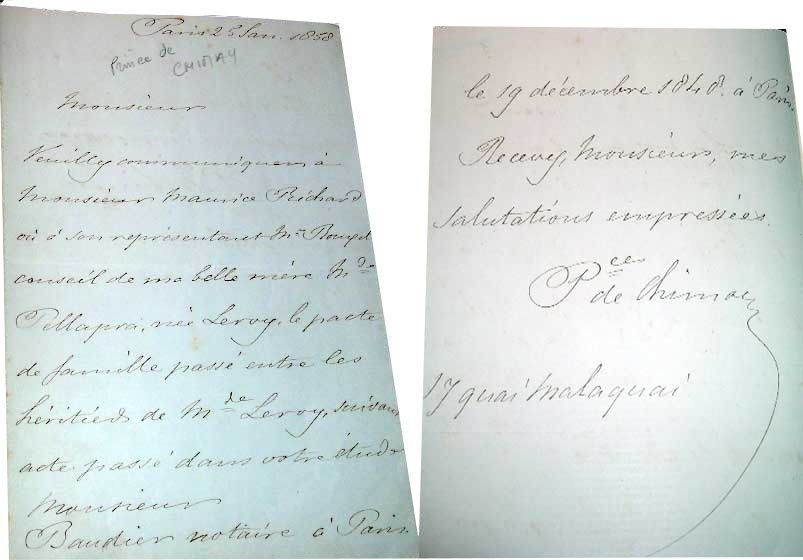 Paris 25 Jan. 1858
Prince de
CHIMAY
Monsieur
Veuillez communiquer à
Monsieur Maurice Richard
où à son représentant Mr
conseil de ma belle mère Mde
Pellapra, née Leroy, le pacte
de famille passé entre les
héritiers de Mde Leroy, suivant
acte passé dans votre étude
Monsieur
Baudier notaire à Paris.
le 19 décembre 1848. à Paris.
Recevez, Monsieur, mes
salutations empressées.
Pce de Chimay
17 quai Malaquai